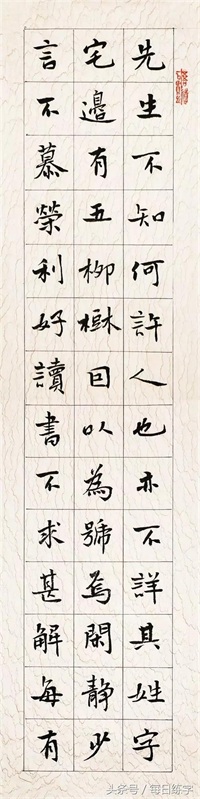 先生不知何許人也亦不詳其姓字
宅邊有五柳樹因以為號焉閑静少
言不慕榮利好讀書不求甚解每有
头条号 / 每日练字